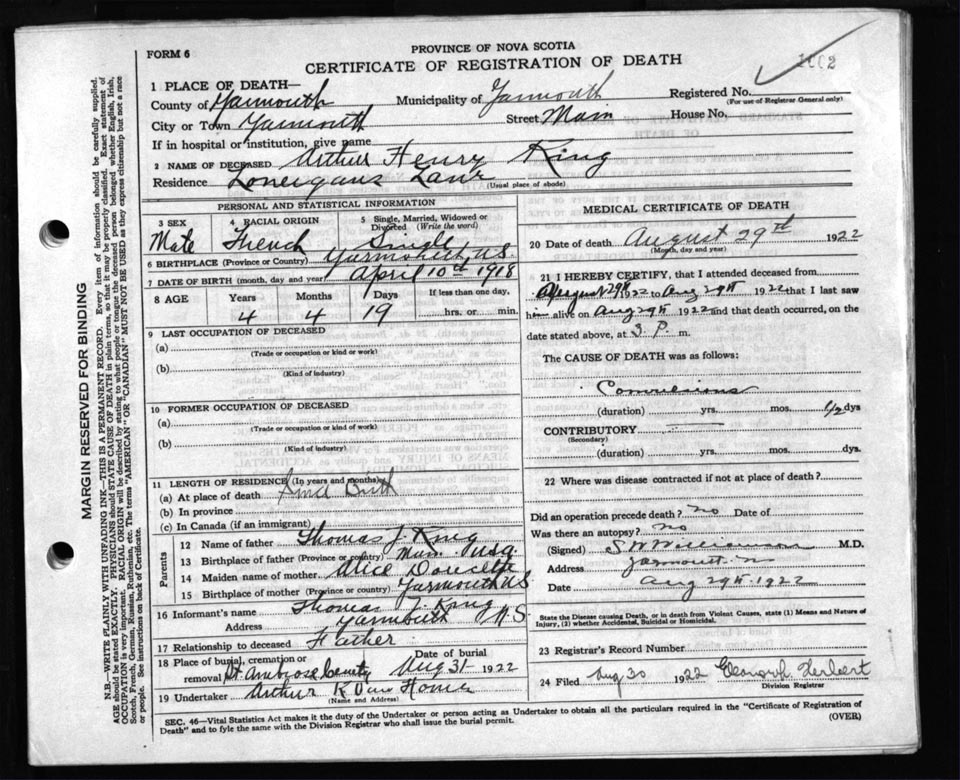 FORM 6
PROVINCE OF NOVA SCOTIA
CERTIFICATE OF REGISTRATION OF DEATH
1002
1 PLACE OF DEATH—
County of Yarmouth Municipality of Yarmouth Registered No.
(For use of Registrar General only)
City or Town Yarmouth Street Main House No.
If in hospital or institution, give name
2 NAME OF DECEASED Arthur Henry King
Residence Lane
(Usual place of abode)
PERSONAL AND STATISTICAL INFORMATION
3 SEX Male
4 RACIAL ORIGIN French
5 Single, Married, Widowed or Divorced (Write the word) Single
6 BIRTHPLACE (Province or Country) Yarmouth N.S.
7 DATE OF BIRTH (month, day and year) April 10th 1918
8 AGE Years Months Days If less than one day,
4 4 19 hrs. or min.
9 LAST OCCUPATION OF DECEASED
(a)
(Trade or occupation or kind or work)
(b)
(Kind of industry)
10 FORMER OCCUPATION OF DECEASED
(a)
(Trade or occupation or kind of work)
(b)
(Kind of industry)
11 LENGTH OF RESIDENCE (In years and months)
(a) At place of death Since Birth
(b) In province
(c) In Canada (if an immigrant)
Parents
12 Name of father Thomas J. King
13 Birthplace of father (Province or country)
14 Maiden name of mother Alice Doucette
15 Birthplace of mother (Province or country) Yarmouth N.S
16 Informant's name Thomas J. King
Address Yarmouth N.S
17 Relationship to deceased Father
18 Place of burial, cremation or removal St Ambrose Date of burial Aug 31 1922
19 Undertaker Arthur K Van Horne
(Name and Address)
MEDICAL CERTIFICATE OF DEATH
20 Date of death August 29th 1922
(Month, day and year)
21 I HEREBY CERTIFY, that I attended deceased from
August 29th 1922 to Aug 29th 1922 that I last saw
him alive on Aug 29th 1922 and that death occurred, on the
date stated above, at 3. P. m.
The CAUSE OF DEATH was as follows:
Convulsions
(duration) yrs. mos. 1/2 dys
CONTRIBUTORY
(Secondary)
(duration) yrs. mos. dys.
22 Where was disease contracted if not at place of death?
Did an operation precede death? no Date of
Was there an autopsy? no
(Signed) Williamson M.D.
Address Yarmouth
Date Aug 29th 1922
State the Disease causing Death, or in death from Violent Causes, state (1) Means and Nature of
Injury, (2) whether Accidental, Suicidal or Homicidal.
23 Registrar's Record Number
24 Filed Aug 30 1922 Herbert
Division Registrar
SEC. 46—Vital Statistics Act makes it the duty of the Undertaker or person acting as Undertaker to obtain all the particulars required in the "Certificate of Registration of
Death" and to fyle the same with the Division Registrar who shall issue the burial permit.
(OVER)
MARGIN RESERVED FOR BINDING
N.B.—WRITE PLAINLY WITH UNFADING INK—THIS IS A PERMANENT RECORD. Every item of information should be carefully supplied.
AGE should be stated EXACTLY. PHYSICIANS should STATE CAUSE OF DEATH in plain terms, so that it may be properly classified. Exact statement of
OCCUPATION is very important. RACIAL ORIGIN will be described by stating to what people or tongue the deceased person belonged whether English, Irish,
Scotch, French, German, Russian, Ruthenian, etc. The terms "AMERICAN" OR "CANADIAN" MUST NOT BE USED as they express citizenship but not a race
or people. See instructions on back of Certificate.